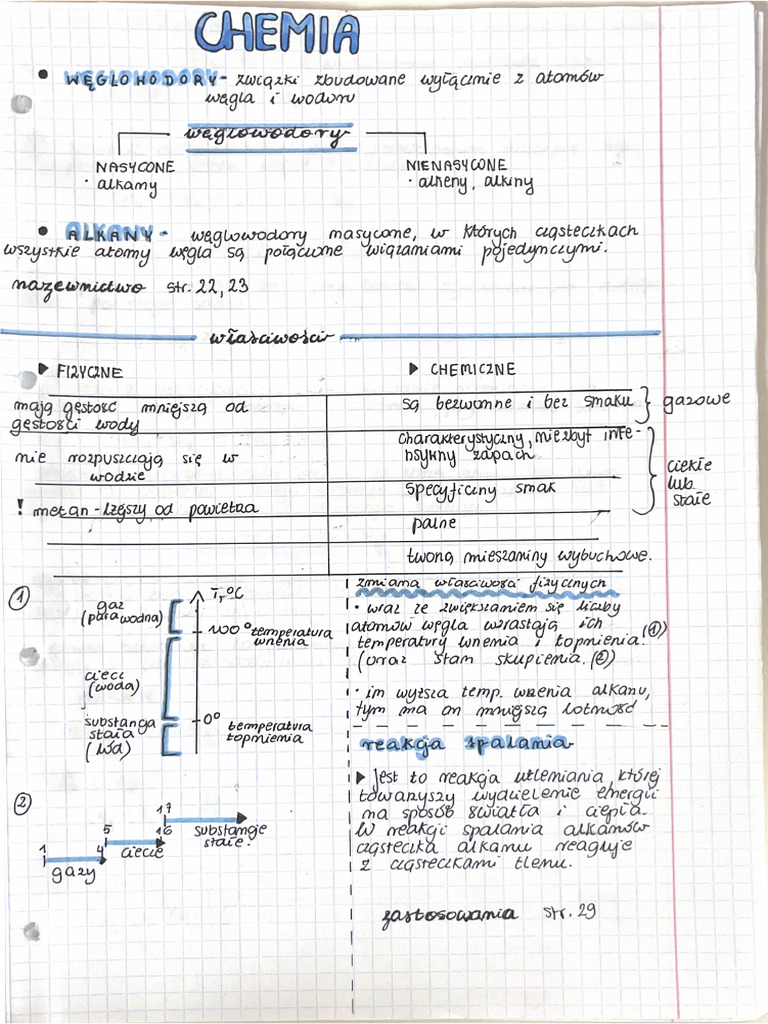 CHEMIA
• WĘGLOWODORY - związki zbudowane wyłącznie z atomów
węgla i wodoru
węglowodory
NASYCONE
· alkany
NIENASYCONE
· alkeny, alkiny
• ALKANY - węglowodory nasycone, w których cząsteczkach
wszystkie atomy węgla są połączone wiązaniami pojedynczymi.
nazewnictwo str. 22, 23
właściwości
▶ FIZYCZNE
▶ CHEMICZNE
mają gęstość mniejszą od
gęstości wody
są bezwonne i bez smaku } gazowe
charakterystyczny, niezbyt inte-
nsywny zapach
nie rozpuszczają się w
wodzie
specyficzny smak
ciekłe
lub
stałe
! metan - lżejszy od powietrza
palne
tworzą mieszaniny wybuchowe.
①
T, °C
gaz
(para wodna)
100° temperatura
wrzenia
ciecz
(woda)
0° temperatura
topnienia
substancja
stała
(lód)
②
1 4
gazy
5 16
ciecze
17
substancje
stałe.
zmiana właściwości fizycznych
· wraz ze zwiększaniem się liczby
atomów węgla wzrastają ich
temperatury wrzenia i topnienia. ①
(oraz stan skupienia. ②)
· im wyższa temp. wrzenia alkanu,
tym ma on mniejszą lotność
reakcja spalania
▶ Jest to reakcja utleniania, której
towarzyszy wydzielenie energii
na sposób światła i ciepła.
W reakcji spalania alkanów
cząsteczka alkanu reaguje
z cząsteczkami tlenu.
zastosowania str. 29